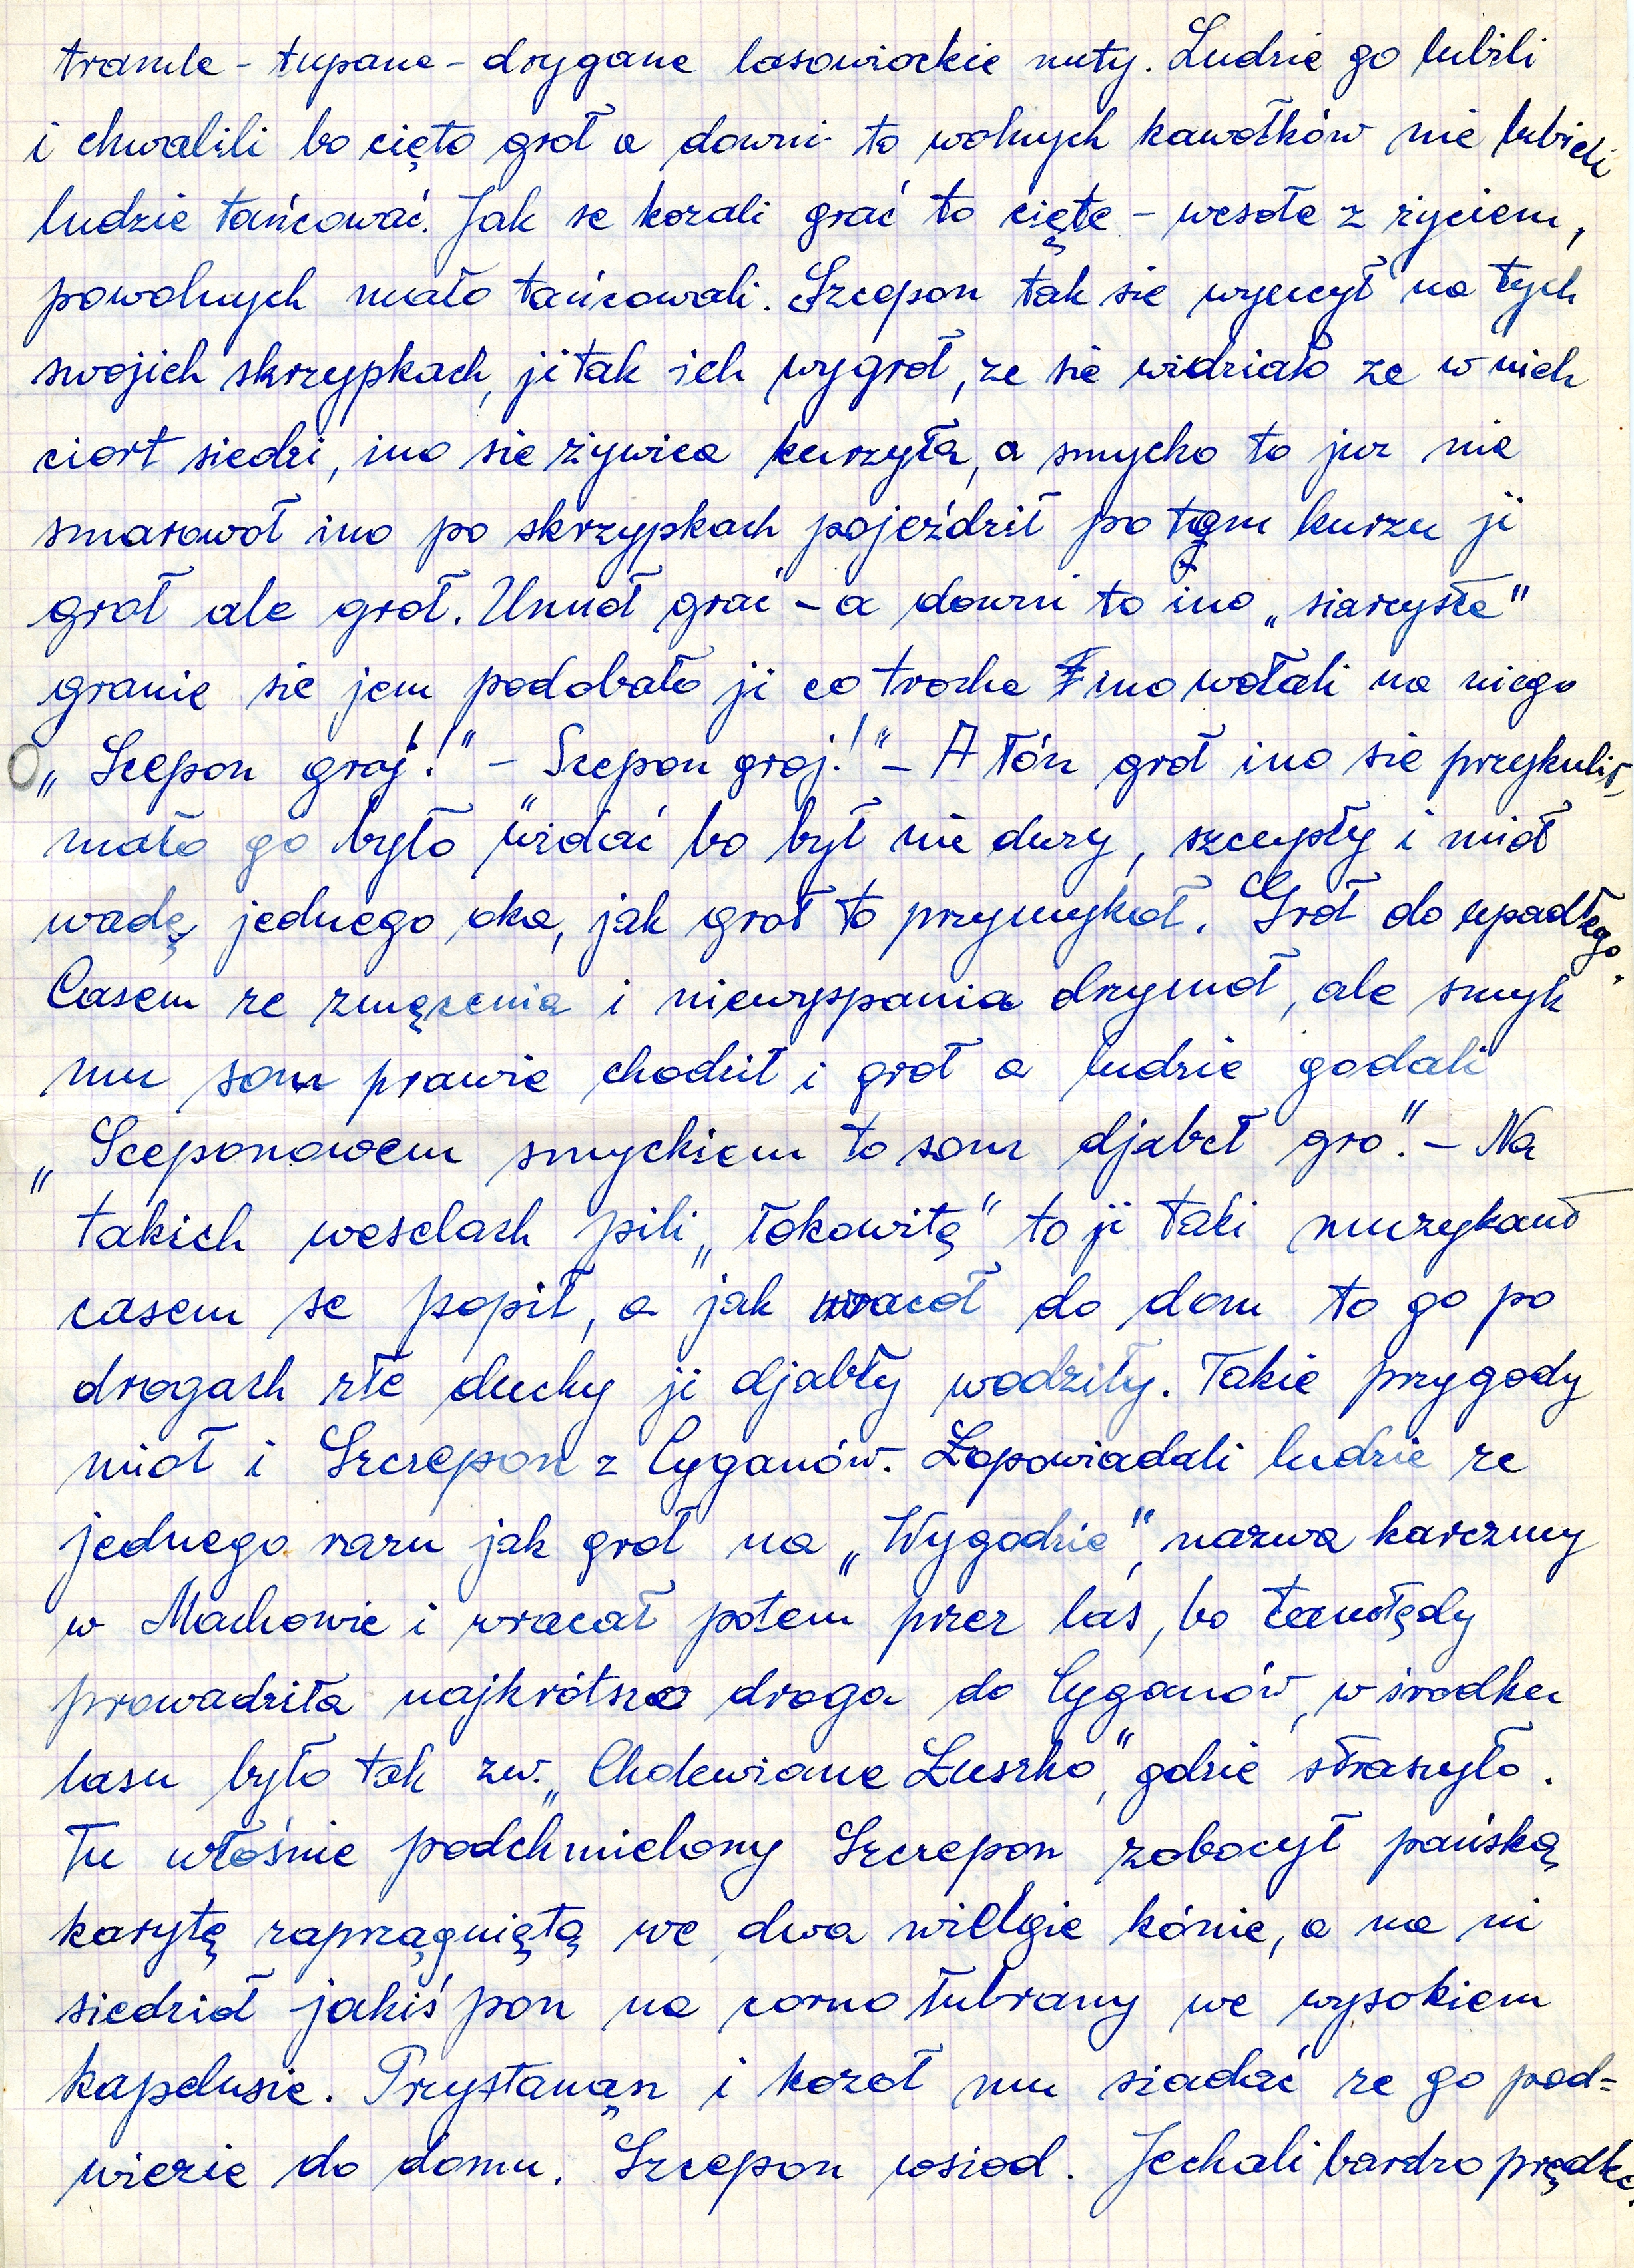 tramle - tupane - drygane lasowiackie nuty. Ludzie go lubili
i chwalili bo cięto groł a downi to wolnych kawołków nie lubieli
ludzie tańcować. Jak se kozali grać to cięte - wesołe z życiem,
powolnych mało tańcowali. Szcepon tak sie wyucył na tych
swojich skrzypkach, ji tak ich wygroł, ze sie widziało ze w nich
ciort siedzi, ino sie żywica kurzyła, a smycka to juz nie
smarowoł ino po skrzypkach pojeździł po tem kurzu ji
groł ale groł. Umioł grać - a downi to ino „siarcyste"
granie sie jem podobało ji co troche ino wołali na niego
„Scepon groj!" - Scepon groj!" - A łón groł ino sie przykulił,
mało go było widać bo był nie duzy, szcupły i mioł
wadę jednego oka, jak groł to przymykoł. Groł do upadłego.
Casem ze zmęcenia i niewyspania drzymoł, ale smyk
mu som prawie chodził i groł a ludzie godali
„Sceponowem smyckiem to som djabeł gro". - Na
takich weselach pili „łokowitę" to ji taki muzykant
casem se popił, a jak wracoł do dom to go po
drogach złe duchy ji djabły wodziły. Takie przygody
mioł i Szczepon z Cyganów. Łopowiadali ludzie ze
jednego razu jak groł na „Wygodzie", nazwa karczmy
w Machowie i wracał potem przez las, bo tamtędy
prowadziła najkrótszo droga do Cyganów, w środku
lasu było tak zw. „Cholewiane Łuszko", gdzie straszyło.
Tu włośnie podchmielony Szczepon zobocył pańską
karytę zaprzągniętą we dwa wielgie kónie, a na ni
siedzioł jakiś pon na corno łubrany we wysokiem
kapelusie. Przystanąn i kozoł mu siadać ze go pod=
wiezie do domu. Szcepon wsiod. Jechali bardzo prędko.